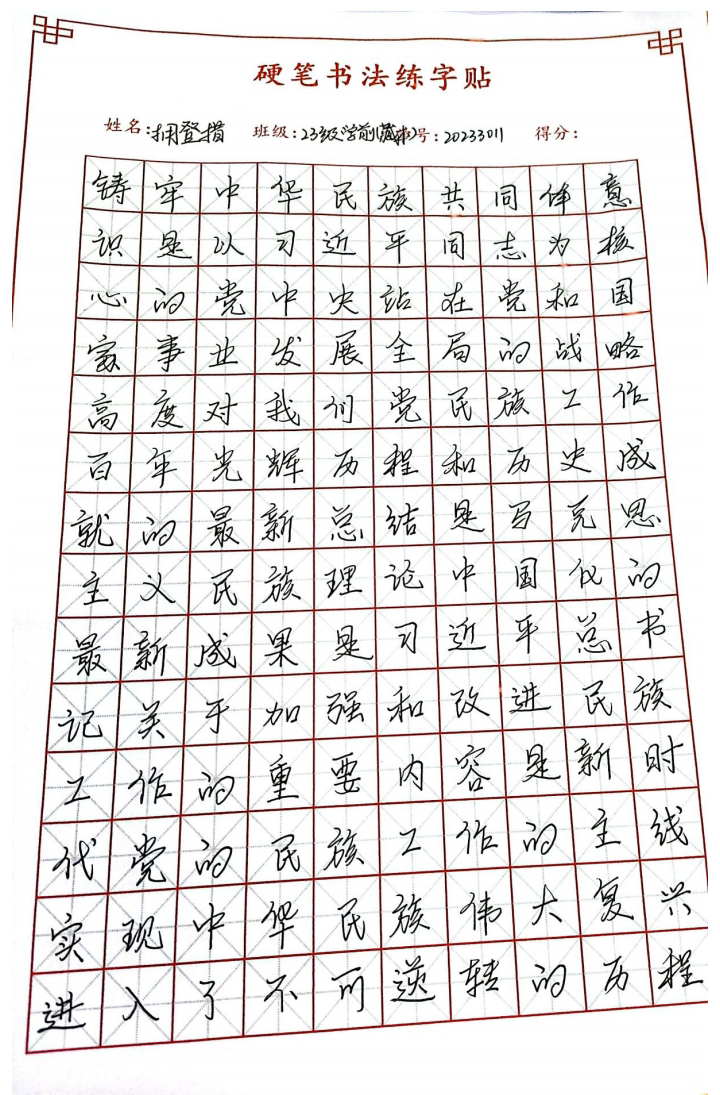 硬笔书法练字贴
姓名:拥登措 班级:23级学前(藏本) 号:20233011 得分:
铸牢中华民族共同体意
识是以习近平同志为核
心的党中央站在党和国
家事业发展全局的战略
高度对我们党民族工作
百年光辉历程和历史成
就的最新总结是马克思
主义民族理论中国化的
最新成果是习近平总书
记关于加强和改进民族
工作的重要内容是新时
代党的民族工作的主线
实现中华民族伟大复兴
进入了不可逆转的历程